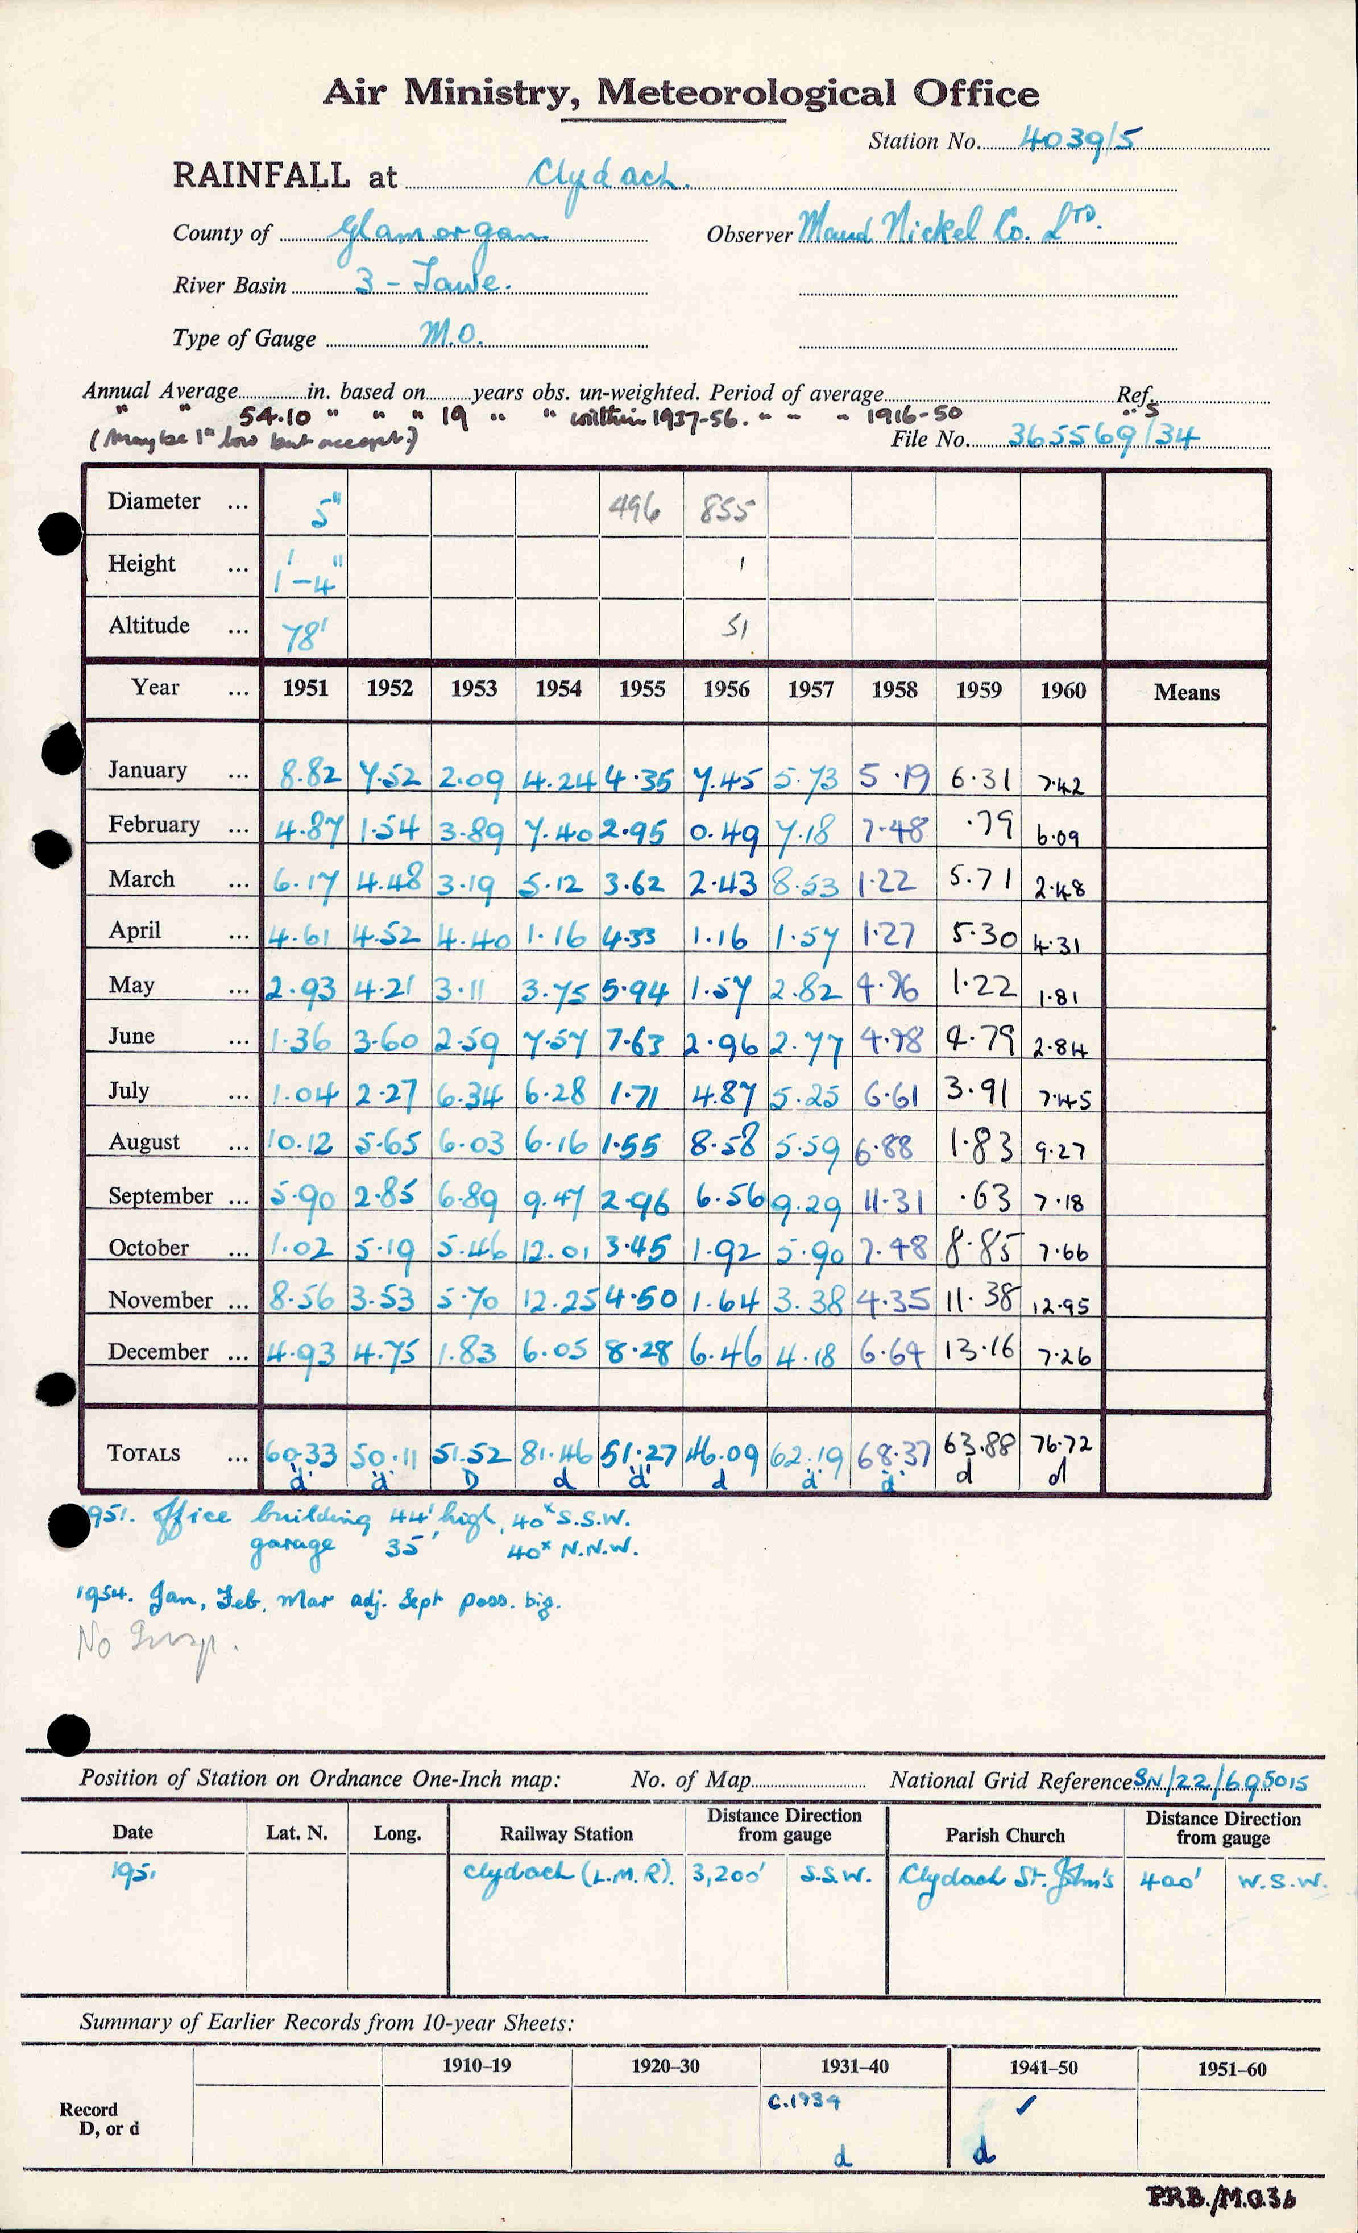 Air Ministry, Meteorological Office
Station No. 4039/5
RAINFALL at Clydach.
County of Glamorgan Observer Mond Nickel Co. LTD.
River Basin 3 - Tawe.
Type of Gauge M.O.
Annual Average in. based on years obs. un-weighted. Period of average Ref.
" " 54.10 " " " 19 " " within 1937-56. " " " 1916-50 " 5
(Maybe 1" low but accept) File No. 365569/34
Diameter ... 5" 496 855
Height ... 1'-4" 1
Altitude ... 78' 51
Year ... 1951 1952 1953 1954 1955 1956 1957 1958 1959 1960 Means
January ... 8.82 7.52 2.09 4.24 4.35 7.45 5.73 5.19 6.31 7.42
February ... 4.87 1.54 3.89 7.40 2.95 0.49 7.18 7.48 .79 6.09
March ... 6.17 4.48 3.19 5.12 3.62 2.43 8.53 1.22 5.71 2.48
April ... 4.61 4.52 4.40 1.16 4.33 1.16 1.57 1.27 5.30 4.31
May ... 2.93 4.21 3.11 3.75 5.94 1.57 2.82 4.96 1.22 1.81
June ... 1.36 3.60 2.59 7.57 7.63 2.96 2.77 4.98 4.79 2.84
July ... 1.04 2.27 6.34 6.28 1.71 4.87 5.25 6.61 3.91 7.45
August ... 10.12 5.65 6.03 6.16 1.55 8.58 5.59 6.88 1.83 9.27
September ... 5.90 2.85 6.89 9.47 2.96 6.56 9.29 11.31 .63 7.18
October ... 1.02 5.19 5.46 12.01 3.45 1.92 5.90 7.48 8.85 7.66
November ... 8.56 3.53 5.70 12.25 4.50 1.64 3.38 4.35 11.38 12.95
December ... 4.93 4.75 1.83 6.05 8.28 6.46 4.18 6.64 13.16 7.26
TOTALS ... 60.33 50.11 51.52 81.46 51.27 46.09 62.19 68.37 63.88 76.72
d d D d d d d d d d
1951. Office building 44' high, 40x S.S.W.
garage 35' 40x N.N.W.
1954. Jan, Feb, Mar adj. Sept poss. big.
No Insp.
Position of Station on Ordnance One-Inch map: No. of Map National Grid Reference SN/22/695015
Date Lat. N. Long. Railway Station Distance Direction from gauge Parish Church Distance Direction from gauge
1951 Clydach (L.M.R). 3,200' S.S.W. Clydach St. John's 400' W.S.W.
Summary of Earlier Records from 10-year Sheets:
1910-19 1920-30 1931-40 1941-50 1951-60
Record C.1934 ✓
D, or d d d
PRB./M.O.36